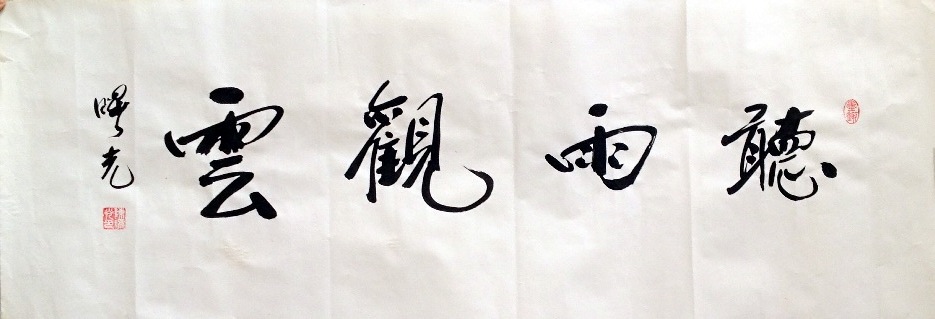 聽雨觀雲
曙光